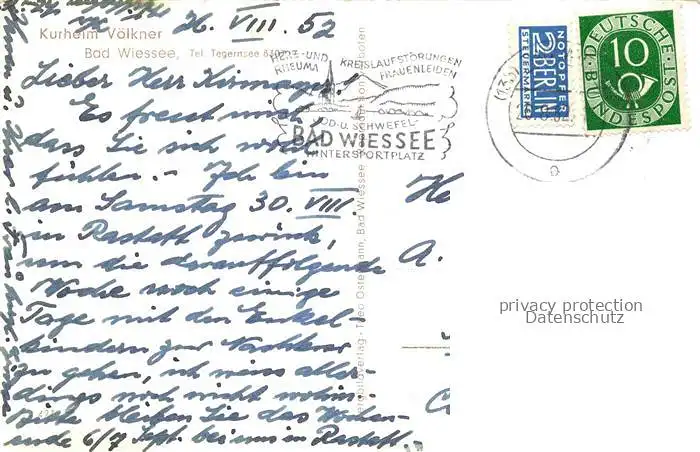 26. VIII. 52
Kurheim Völkner
Bad Wiessee, Tel. Tegernsee
Lieber Herr Kirmayer!
Es freut mich,
dass Sie sich wohl
fühlen. - Ich bin
am Samstag 30. VIII.
in Rastatt zurück,
um die darauffolgende
Woche noch einige
Tage mit den Enkel-
kindern zur
zu gehen, ich weiss aller-
dings noch nicht wohin.
Bitte bleiben Sie das Wochen-
ende 6/7 Sept. bei uns in Rastatt.
HERZ- UND KREISLAUFSTÖRUNGEN
RHEUMA FRAUENLEIDEN
JOD- U. SCHWEFEL-
BAD WIESSEE
WINTERSPORTPLATZ
Theo Ostermann, Bad Wiessee
NOTOPFER
2 BERLIN
STEUERMARKE
DEUTSCHE
10
BUNDESPOST
He
A.
privacy protection
Datenschutz